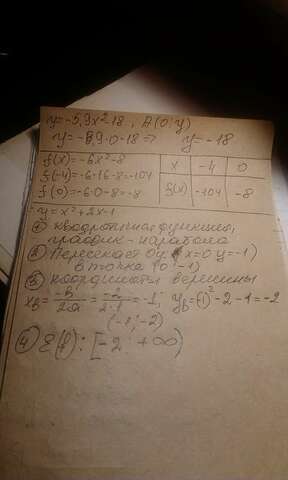 y=-5,9x²-18, A(0; y)
y=-5,9·0-18 => y=-18
f(x)=-6x²-8
f(-4)=-6·16-8=-104
f(0)=-6·0-8=-8
x -4 0
f(x) -104 -8
y=x²+2x-1
① квадратичная функция,
график - парабола
② Пересекает Oy (x=0 y=-1)
в точка (0; -1)
③ координаты вершины
xв = -b/2a = -2/2·1 = -1; yв=(-1)²-2-1=-2
(-1; -2)
④ E(f): [-2; +∞)